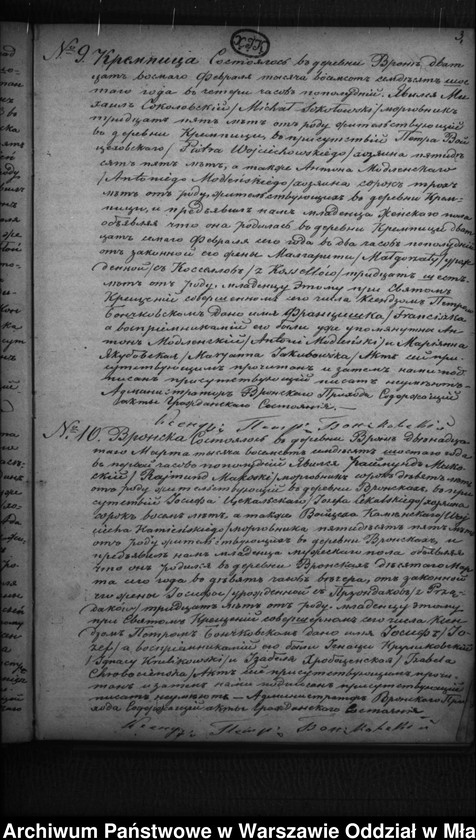 3
№ 9. Кремпица Состоялось въ деревни Вронъ двад
цать восмаго Февраля тысяча восемсотъ семдесятъ шес
таго года въ четыри часовъ пополудній. Явился Ми
хаилъ Соколовскій /Michał Sokołowski/ морговникъ
тридцать пять лѣтъ отъ роду жительствующій
въ деревни Кремпицы, въ присутствіи Петра Вой
цѣховскаго /Piotra Wojciechowskiego/ хозяина пятьде
сятъ пять лѣтъ, а также Антона Модленскаго
/Antoniego Modleńskiego/ хозяина сорокъ трохъ
лѣтъ отъ роду, жительствующихъ въ деревни Крем-
пицы, и предъявилъ намъ младенца Женскаго пола
объявляя что она родилась въ деревни Кремпицы двад
цать семаго Февраля сего года въ два часовъ пополудній
отъ законной его жены Малгоржаты /Małgorzaty/ урож
денной /съ Косселовъ/ z Kossellów/ тридцать шесть
лѣтъ отъ роду. младенцу этому при Святомъ
Крещеніи совершенномъ сего числа Ксендзомъ Петромъ
Бончковскимъ дано имя Францишка /Franciszka/
а воспріемниками его были уже упомянутый Ан
тонъ Модленскій /Antoni Modleński/ и Маріянна
Якубовская /Maryanna Jakubowska/ Актъ сей при-
сутствующимъ прочитанъ и затемъ нами под
писанъ присутствующій писать неумѣютъ
Администраторъ Вронскаго Прихода Содержащій
акты Гражданскаго Состоянія
Ксендзъ Петръ Бончковскій
№ 10. Вронска Состоялось въ деревни Вронъ Двенадца
таго Марта тысяча восемсотъ семдесятъ шестаго года
въ часовъ пополудній Явился Раймундъ
скій /Rajmund/ морговникъ сорокъ лѣтъ
отъ роду жительствующій въ деревни Вронскахъ въ при
сутствіи Іосифа Józefa хозяина
сорокъ восмь лѣтъ, а также Войцеха Каменскаго /Woj
ciecha Kamieńskiego/ морговника пятьдесятъ пять лѣтъ
отъ роду жительствующихъ въ деревни Вронскахъ, и
предъявилъ намъ младенца мужескаго пола объявляя
что онъ родился въ деревни Вронскахъ десятаго Мар
та сего года въ девять часовъ вечера, отъ законной
его жены Іосифы /урожденной съ
тридцать лѣтъ отъ роду. младенцу этому
при Святомъ Крещеніи совершенномъ сего числа Ксен
дзомъ Петромъ Бончковскимъ дано имя Іосифъ /Jó
zef/ а воспріемниками его были Игнацій
Ignacy и Изабелла /Izabela
Актъ сей присутствующимъ прочи
танъ и затемъ нами подписанъ присутствующій
писать неумѣютъ — Администраторъ Вронскаго При
хода Содержащій акты Гражданскаго Состоянія
Ксендзъ Петръ Бончковскій
Archiwum Państwowe w Warszawie Oddział w Mła